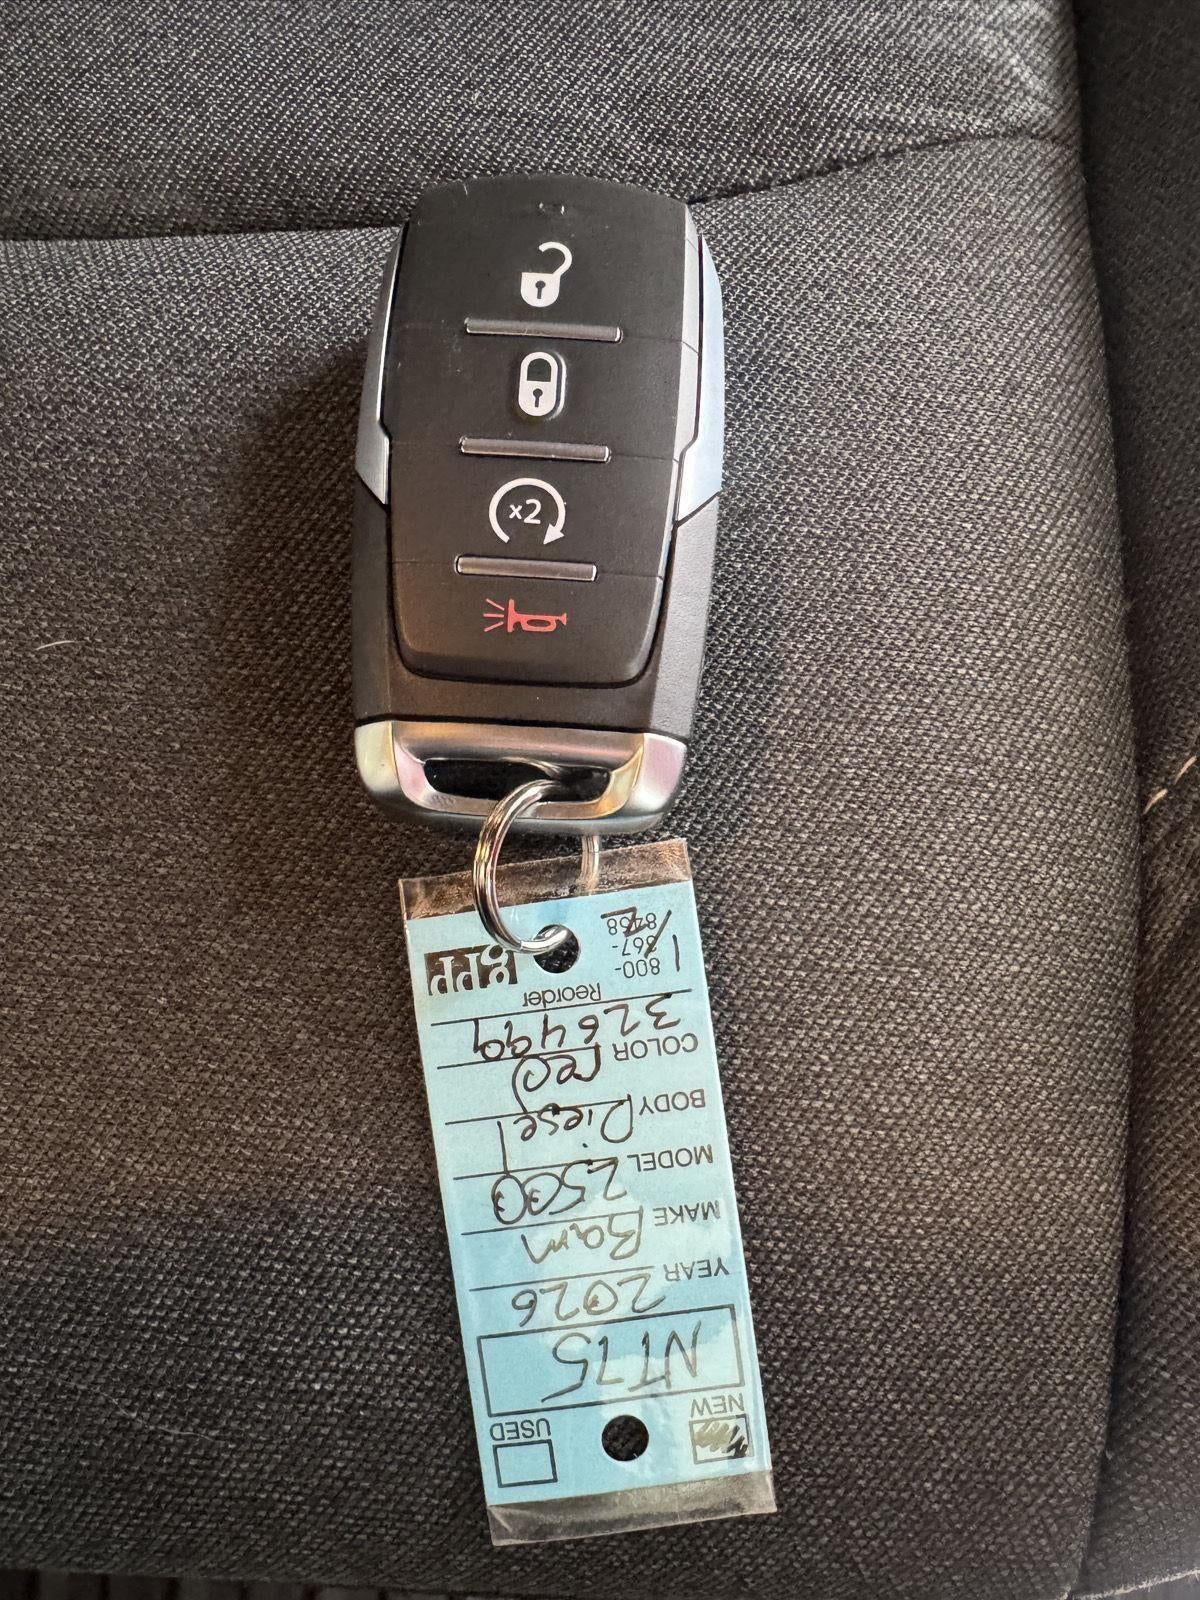 x2
NEW USED
NT75
YEAR 2026
MAKE Ram
MODEL 2500
BODY Diesel
COLOR red
326499
Reorder
800-
367-